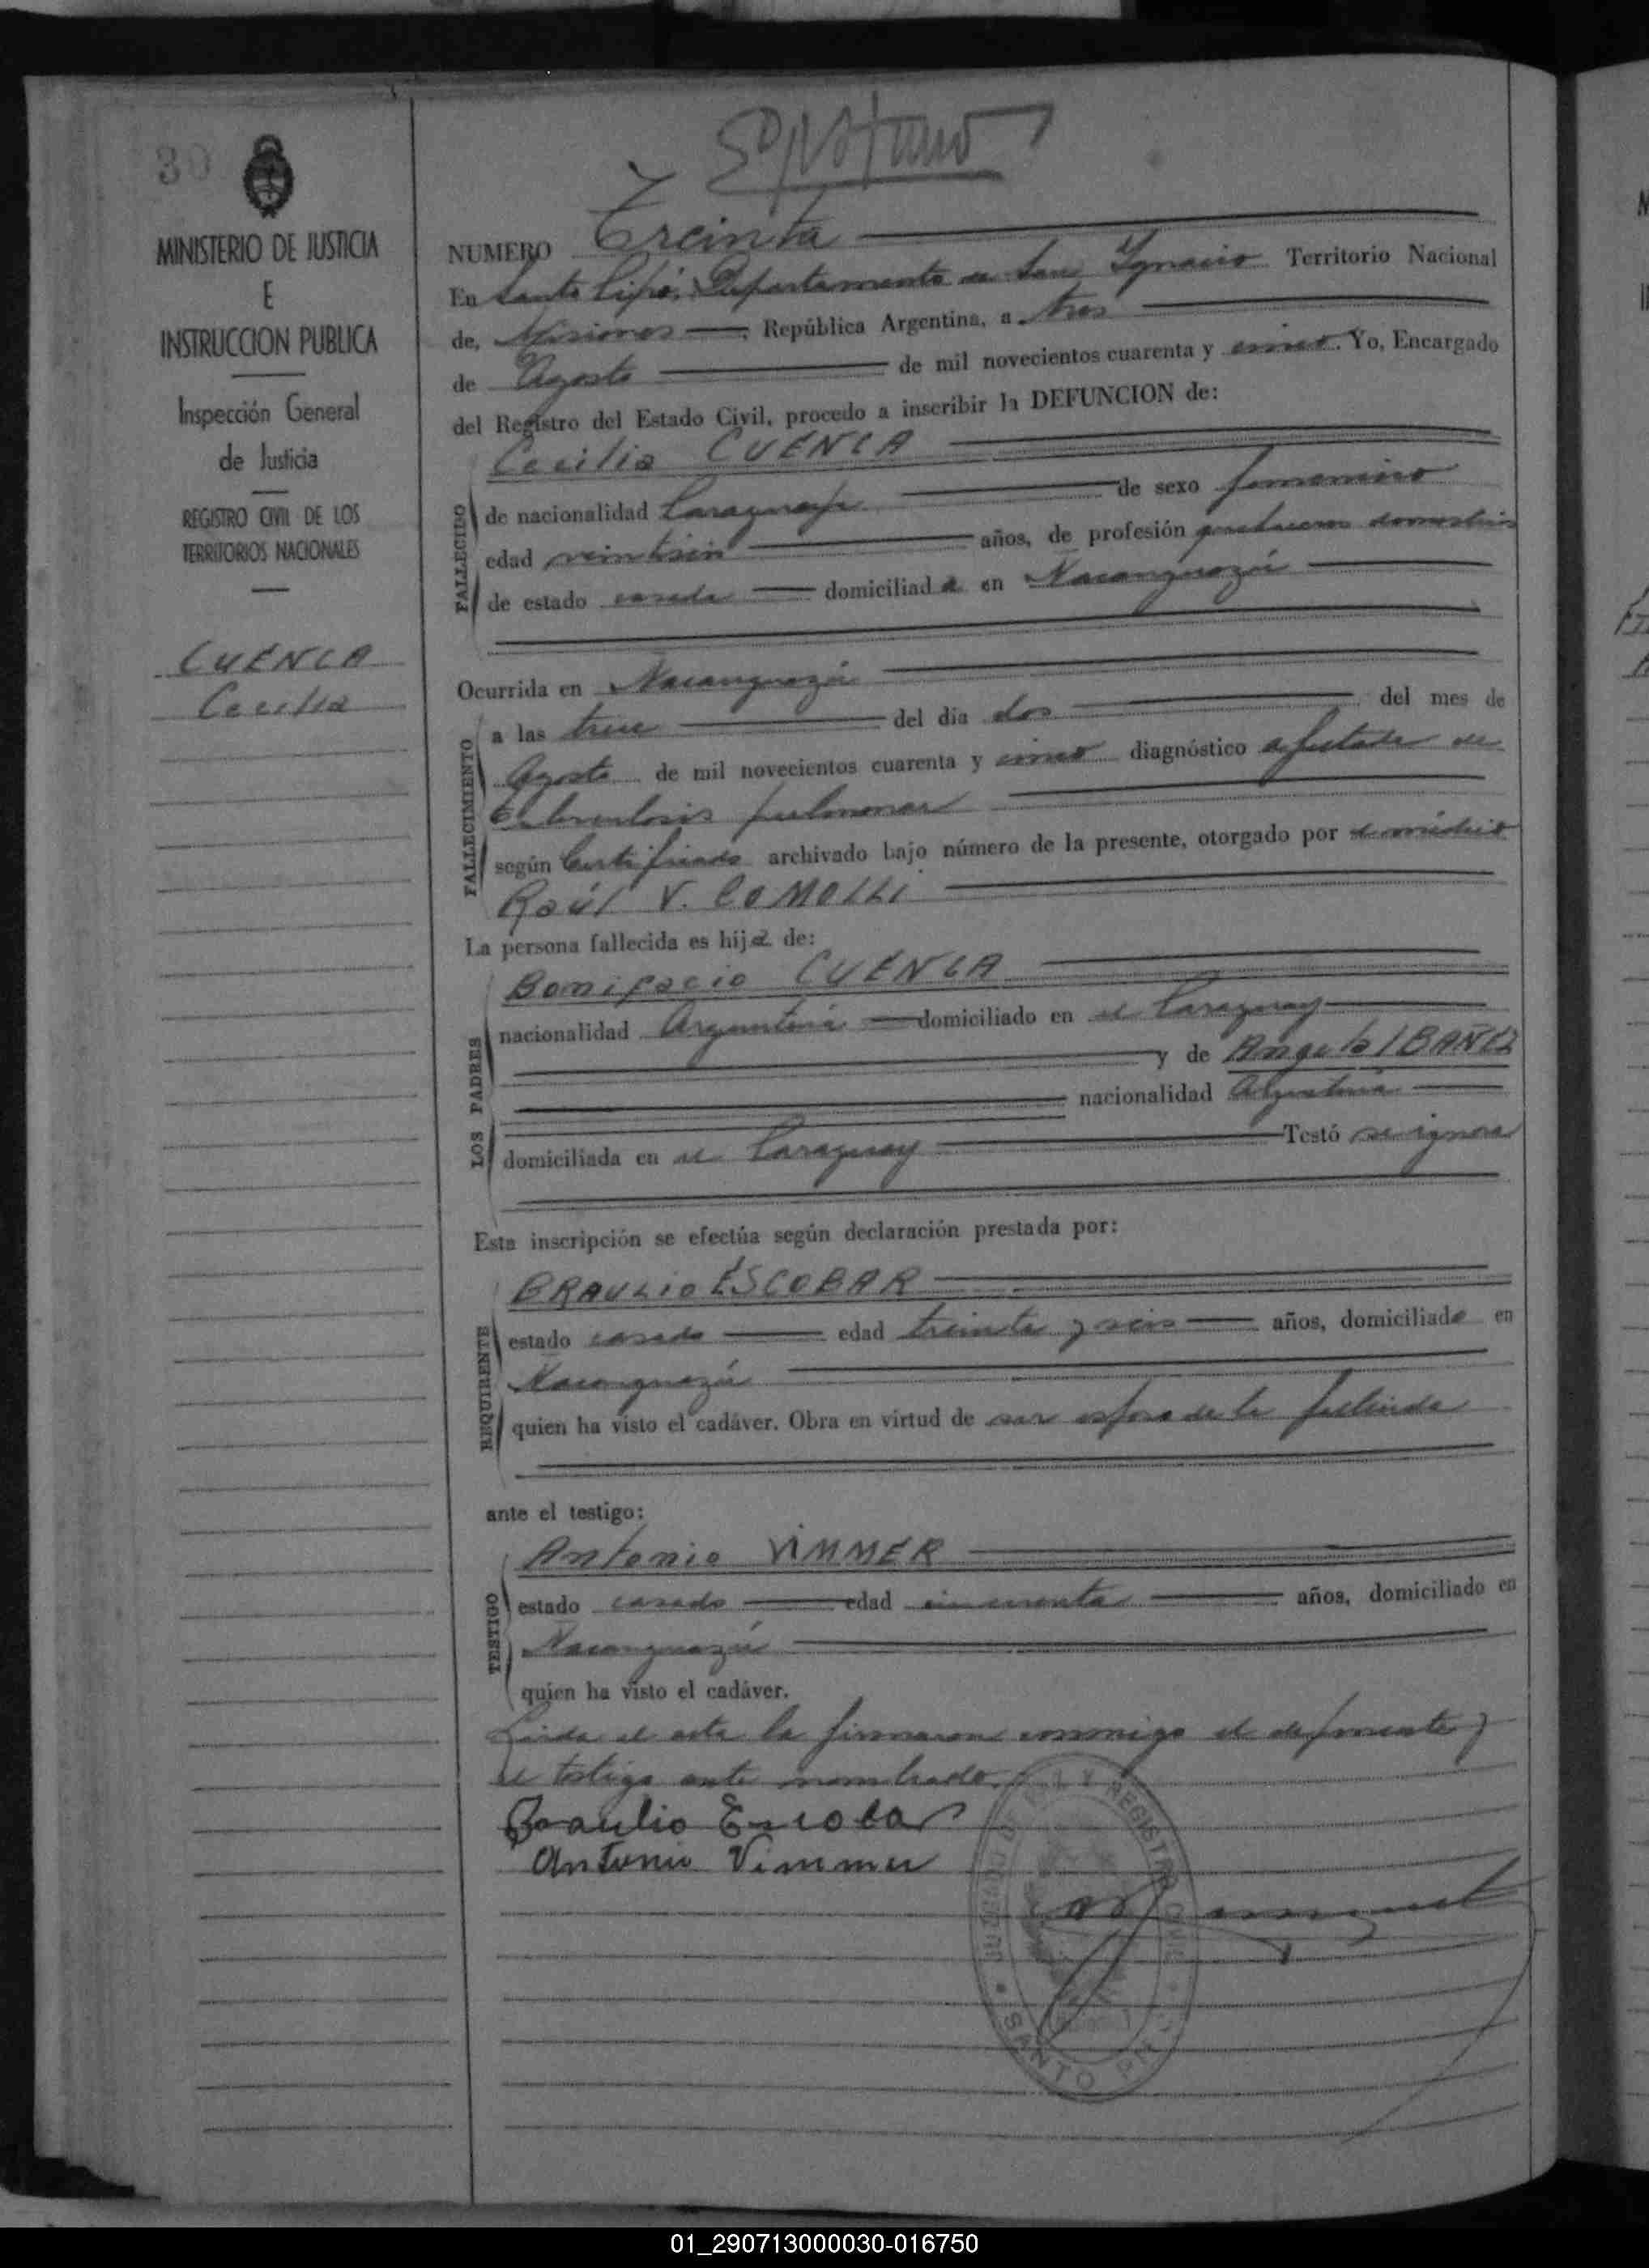 30
MINISTERIO DE JUSTICIA
E
INSTRUCCION PUBLICA
Inspección General
de Justicia
REGISTRO CIVIL DE LOS
TERRITORIOS NACIONALES
CUENCA
Cecilia
NUMERO Treinta
En Santo Pipó, Departamento de San Ignacio Territorio Nacional
de, Misiones, República Argentina, a tres
de Agosto de mil novecientos cuarenta y cinco. Yo, Encargado
del Registro del Estado Civil, procedo a inscribir la DEFUNCION de:
Cecilia CUENCA
FALLECIDO
de nacionalidad Paraguaya de sexo femenino
edad años, de profesión quehaceres domesticos
de estado casada domiciliada en Ñacanguazú
Ocurrida en Ñacanguazú
FALLECIMIENTO
a las trece del día dos del mes de
Agosto de mil novecientos cuarenta y cinco diagnóstico afectada de
tuberculosis pulmonar
según Certificado archivado bajo número de la presente, otorgado por el médico
Raúl V. COMOLLI
La persona fallecida es hija de:
LOS PADRES
Bonifacio CUENCA
nacionalidad Argentina domiciliado en el Paraguay
y de Angela IBAÑEZ
nacionalidad Argentina
domiciliada en el Paraguay Testó se ignora
Esta inscripción se efectúa según declaración prestada por:
REQUIRENTE
BRAULIO ESCOBAR
estado casado edad treinta y seis años, domiciliado en
Ñacanguazú
quien ha visto el cadáver. Obra en virtud de ser esposo de la fallecida
ante el testigo:
TESTIGO
Antonio VIMMER
estado casado edad cincuenta años, domiciliado en
Ñacanguazú
quien ha visto el cadáver.
Leida el acta la firmaron conmigo el deponente y
el testigo ante nombrado.
Braulio Escobar
Antonio Vimmer
REGISTRO CIVIL
SANTO PIPÓ
01_290713000030-016750